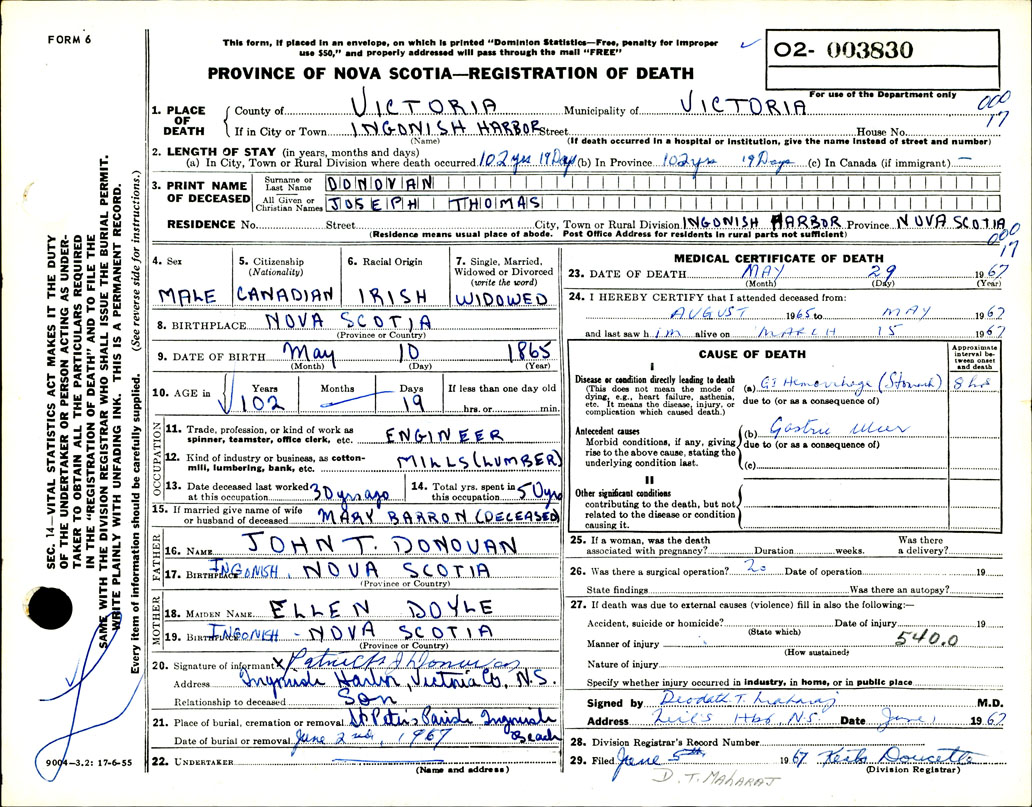 FORM 6
This form, if placed in an envelope, on which is printed "Dominion Statistics—Free, penalty for improper
use $50," and properly addressed will pass through the mail "FREE"
PROVINCE OF NOVA SCOTIA—REGISTRATION OF DEATH
O2- 003830
For use of the Department only
000
17
1. PLACE OF DEATH
County of VICTORIA Municipality of VICTORIA
If in City or Town INGONISH HARBOR Street House No.
(Name) (If death occurred in a hospital or institution, give the name instead of street and number)
2. LENGTH OF STAY (in years, months and days)
(a) In City, Town or Rural Division where death occurred 102 yrs 19 Days (b) In Province 102 yrs 19 Days (c) In Canada (if immigrant) —
3. PRINT NAME OF DECEASED
Surname or Last Name DONOVAN
All Given or Christian Names JOSEPH THOMAS
RESIDENCE No. Street City, Town or Rural Division INGONISH HARBOR Province NOVA SCOTIA
(Residence means usual place of abode. Post Office Address for residents in rural parts not sufficient)
000
17
4. Sex
MALE
5. Citizenship
(Nationality)
CANADIAN
6. Racial Origin
IRISH
7. Single, Married,
Widowed or Divorced
(write the word)
WIDOWED
8. BIRTHPLACE NOVA SCOTIA
(Province or Country)
9. DATE OF BIRTH May 10 1865
(Month) (Day) (Year)
10. AGE in
Years Months Days If less than one day old
102 19 hrs. or min.
OCCUPATION
11. Trade, profession, or kind of work as
spinner, teamster, office clerk, etc. ENGINEER
12. Kind of industry or business, as cotton-
mill, lumbering, bank, etc. MILLS (LUMBER)
13. Date deceased last worked
at this occupation 30 yrs ago
14. Total yrs. spent in
this occupation 50 yrs
15. If married give name of wife
or husband of deceased MARY BARRON (DECEASED)
FATHER
16. NAME JOHN T. DONOVAN
17. BIRTHPLACE INGONISH, NOVA SCOTIA
(Province or Country)
MOTHER
18. MAIDEN NAME ELLEN DOYLE
19. BIRTHPLACE INGONISH - NOVA SCOTIA
(Province or Country)
20. Signature of informant X Patrick J Donovan
Address Ingonish Harbor, Victoria Co, N.S.
Relationship to deceased Son
21. Place of burial, cremation or removal St Peter's Parish Ingonish
Beach
Date of burial or removal June 2nd, 1967
22. UNDERTAKER
(Name and address)
MEDICAL CERTIFICATE OF DEATH
23. DATE OF DEATH MAY 29 1967
(Month) (Day) (Year)
24. I HEREBY CERTIFY that I attended deceased from:
AUGUST 1965 to MAY 1967
and last saw him alive on MARCH 15 1967
CAUSE OF DEATH
Approximate
interval be-
tween onset
and death
I
Disease or condition directly leading to death
(This does not mean the mode of
dying, e.g., heart failure, asthenia,
etc. It means the disease, injury, or
complication which caused death.)
(a) GI Hemorrhage (Stomach) 8 hrs
due to (or as a consequence of)
Antecedent causes
Morbid conditions, if any, giving
rise to the above cause, stating the
underlying condition last.
(b) Gastric ulcer
due to (or as a consequence of)
(c)
II
Other significant conditions
contributing to the death, but not
related to the disease or condition
causing it.
25. If a woman, was the death
associated with pregnancy? Duration weeks. Was there
a delivery?
26. Was there a surgical operation? No Date of operation 19
State findings Was there an autopsy?
27. If death was due to external causes (violence) fill in also the following:—
Accident, suicide or homicide? Date of injury 19
(State which)
Manner of injury 540.0
(How sustained)
Nature of injury
Specify whether injury occurred in industry, in home, or in public place
Signed by Deodath T. Maharaj M.D.
Address Neil's Hbr, NS Date June 1 1967
28. Division Registrar's Record Number
29. Filed June 5th 1967 Keith Doucette
(Division Registrar)
D. T. MAHARAJ
SEC. 14—VITAL STATISTICS ACT MAKES IT THE DUTY
OF THE UNDERTAKER OR PERSON ACTING AS UNDER-
TAKER TO OBTAIN ALL THE PARTICULARS REQUIRED
IN THE "REGISTRATION OF DEATH" AND TO FILE THE
SAME WITH THE DIVISION REGISTRAR WHO SHALL ISSUE THE BURIAL PERMIT.
WRITE PLAINLY WITH UNFADING INK. THIS IS A PERMANENT RECORD.
Every item of information should be carefully supplied. (See reverse side for instructions.)
9004-3.2: 17-6-55